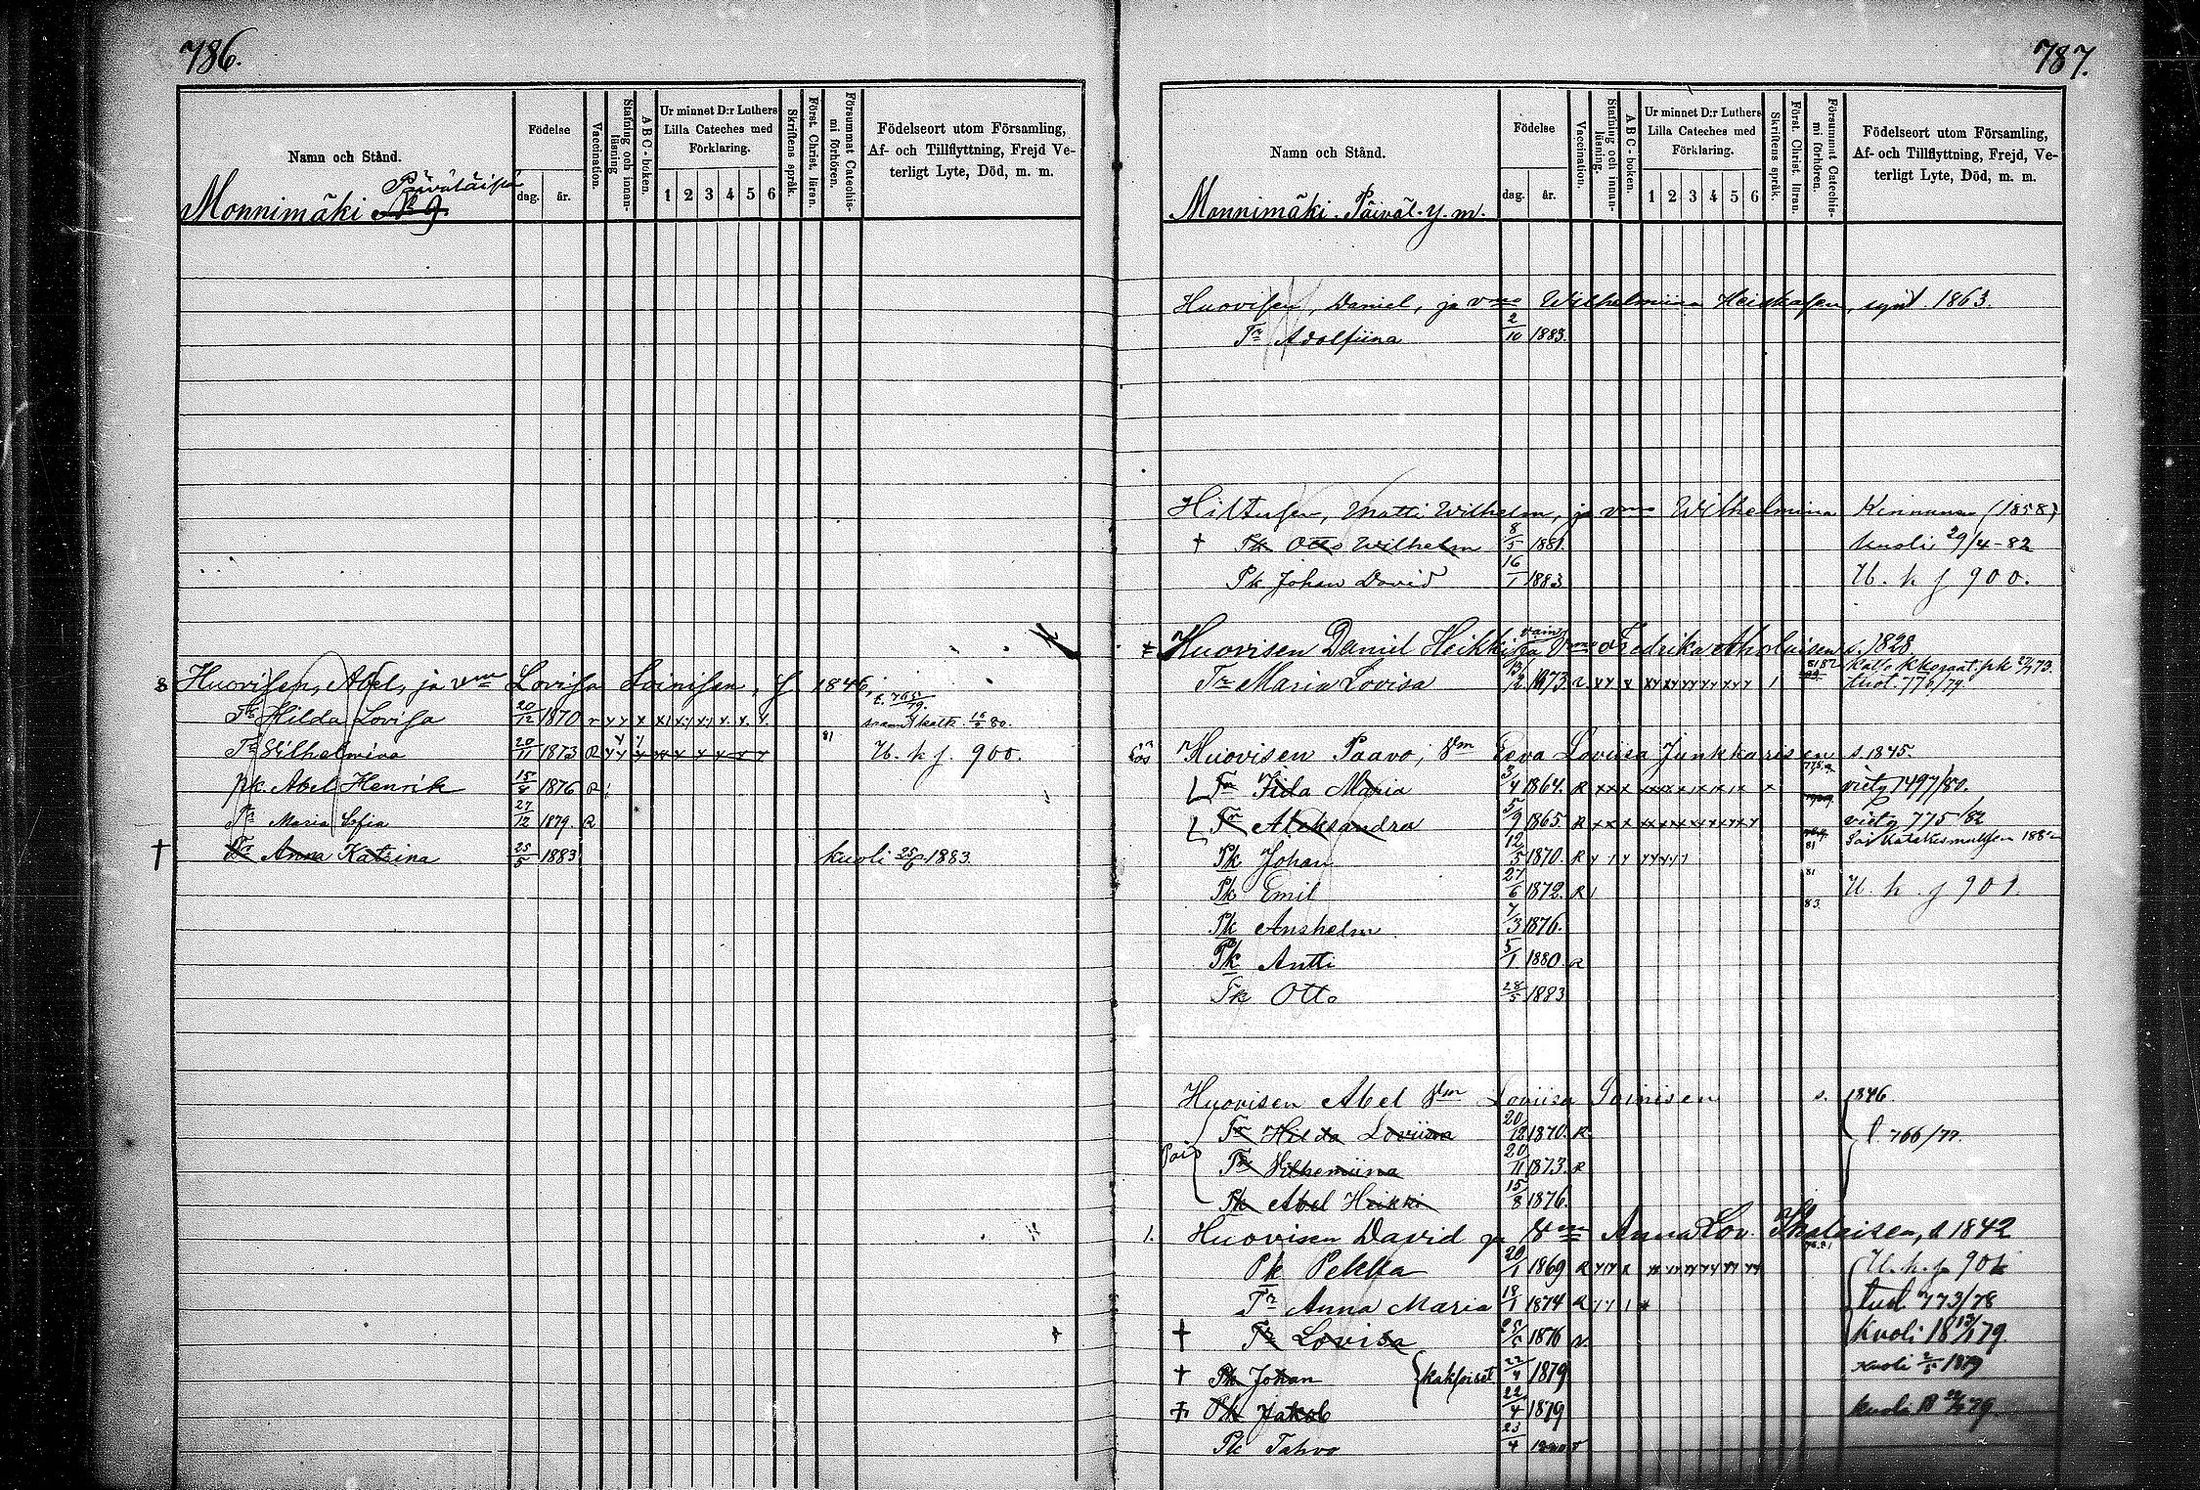 786.
Namn och Stånd.
Födelse
dag.
år.
Vaccination.
Stafning och innan-läsning
A B C-boken.
Ur minnet D:r Luthers
Lilla Cateches med
Förklaring.
1 2 3 4 5 6
Skriftens språk.
Först. Christ. läran.
Försummat Catechis-
mi förhören.
Födelseort utom Församling,
Af- och Tillflyttning, Frejd Ve-
terligt Lyte, Död, m. m.
Monnimäki № 9.
8 Huovisen, Abel, ja vmo Lovisa Soinisen, s 1846,
Tr Hilda Lovisa 20/12 1870
Tr Vilhelmina 20/11 1873 R 81 U. k s. 900.
pk. Abel Henrik 15/8 1876 R
Tr Maria Sofia 27/12 1879. R
† Tr Anna Katrina 25/5 1883 kuoli 25/6 1883.
787.
Namn och Stånd.
Födelse
dag.
år.
Vaccination.
Stafning och innan-läsning.
A B C-boken.
Ur minnet D:r Luthers
Lilla Cateches med
Förklaring.
1 2 3 4 5 6
Skriftens språk.
Först. Christ. läran.
Försummat Catechis-
mi förhören.
Födelseort utom Församling,
Af- och Tillflyttning, Frejd, Ve-
terligt Lyte, Död, m. m.
Monnimäki. Päiväl. y. m.
Huovisen, Daniel, ja vmo Wilhelmiina Heiskasen, synt. 1863.
Tr Adolfiina 2/10 1883.
Hiltusen, Matti Wilhelm, ja vmo Wilhelmina Kinnunen (1858)
† Pk Otto Wilhelm 8/5 1881. kuoli 29/4-82
Pk Johan David 16/1 1883 U. k s 900.
Huovisen Daniel Heikki ja Vmo Fredrika Aholaisen s. 1828
Tr Maria Lovisa 1873
Huovisen Paavo, Vm Eeva Loviisa Junkkarisen s. 1845.
Tr Iida Maria 3/4 1864. R viety 1497/80.
Tr Aleksandra 5/9 1865. R viety 775/82
Pk Johan 12/5 1870. R 81
Pk Emil 27/6 1872. R 81 U. k s 901.
Pk Anshelm 7/3 1876. 83
Pk Antti 5/1 1880. R
Pk Otto 28/5 1883
Huovisen Abel Vm Loviisa Soinisen s. 1846.
Tr Hilda Loviisa 20/12 1870. R
Tr Vilhemiina 20/11 1873. R
Pk Abel Heikki 15/8 1876.
1. Huovisen David ja Vmo Anna Lov. s 1842
Pk Pekka 20/1 1869 R U. k s 901
Tr Anna Maria 18/1 1874 R tuol 773/78
† Tr Lovisa 1876 Kuoli
† Pk Johan kaksoiset 22/4 1879 kuoli 2/5 1879
† Pk Jakob 22/4 1879 kuoli
Pk Tahvo